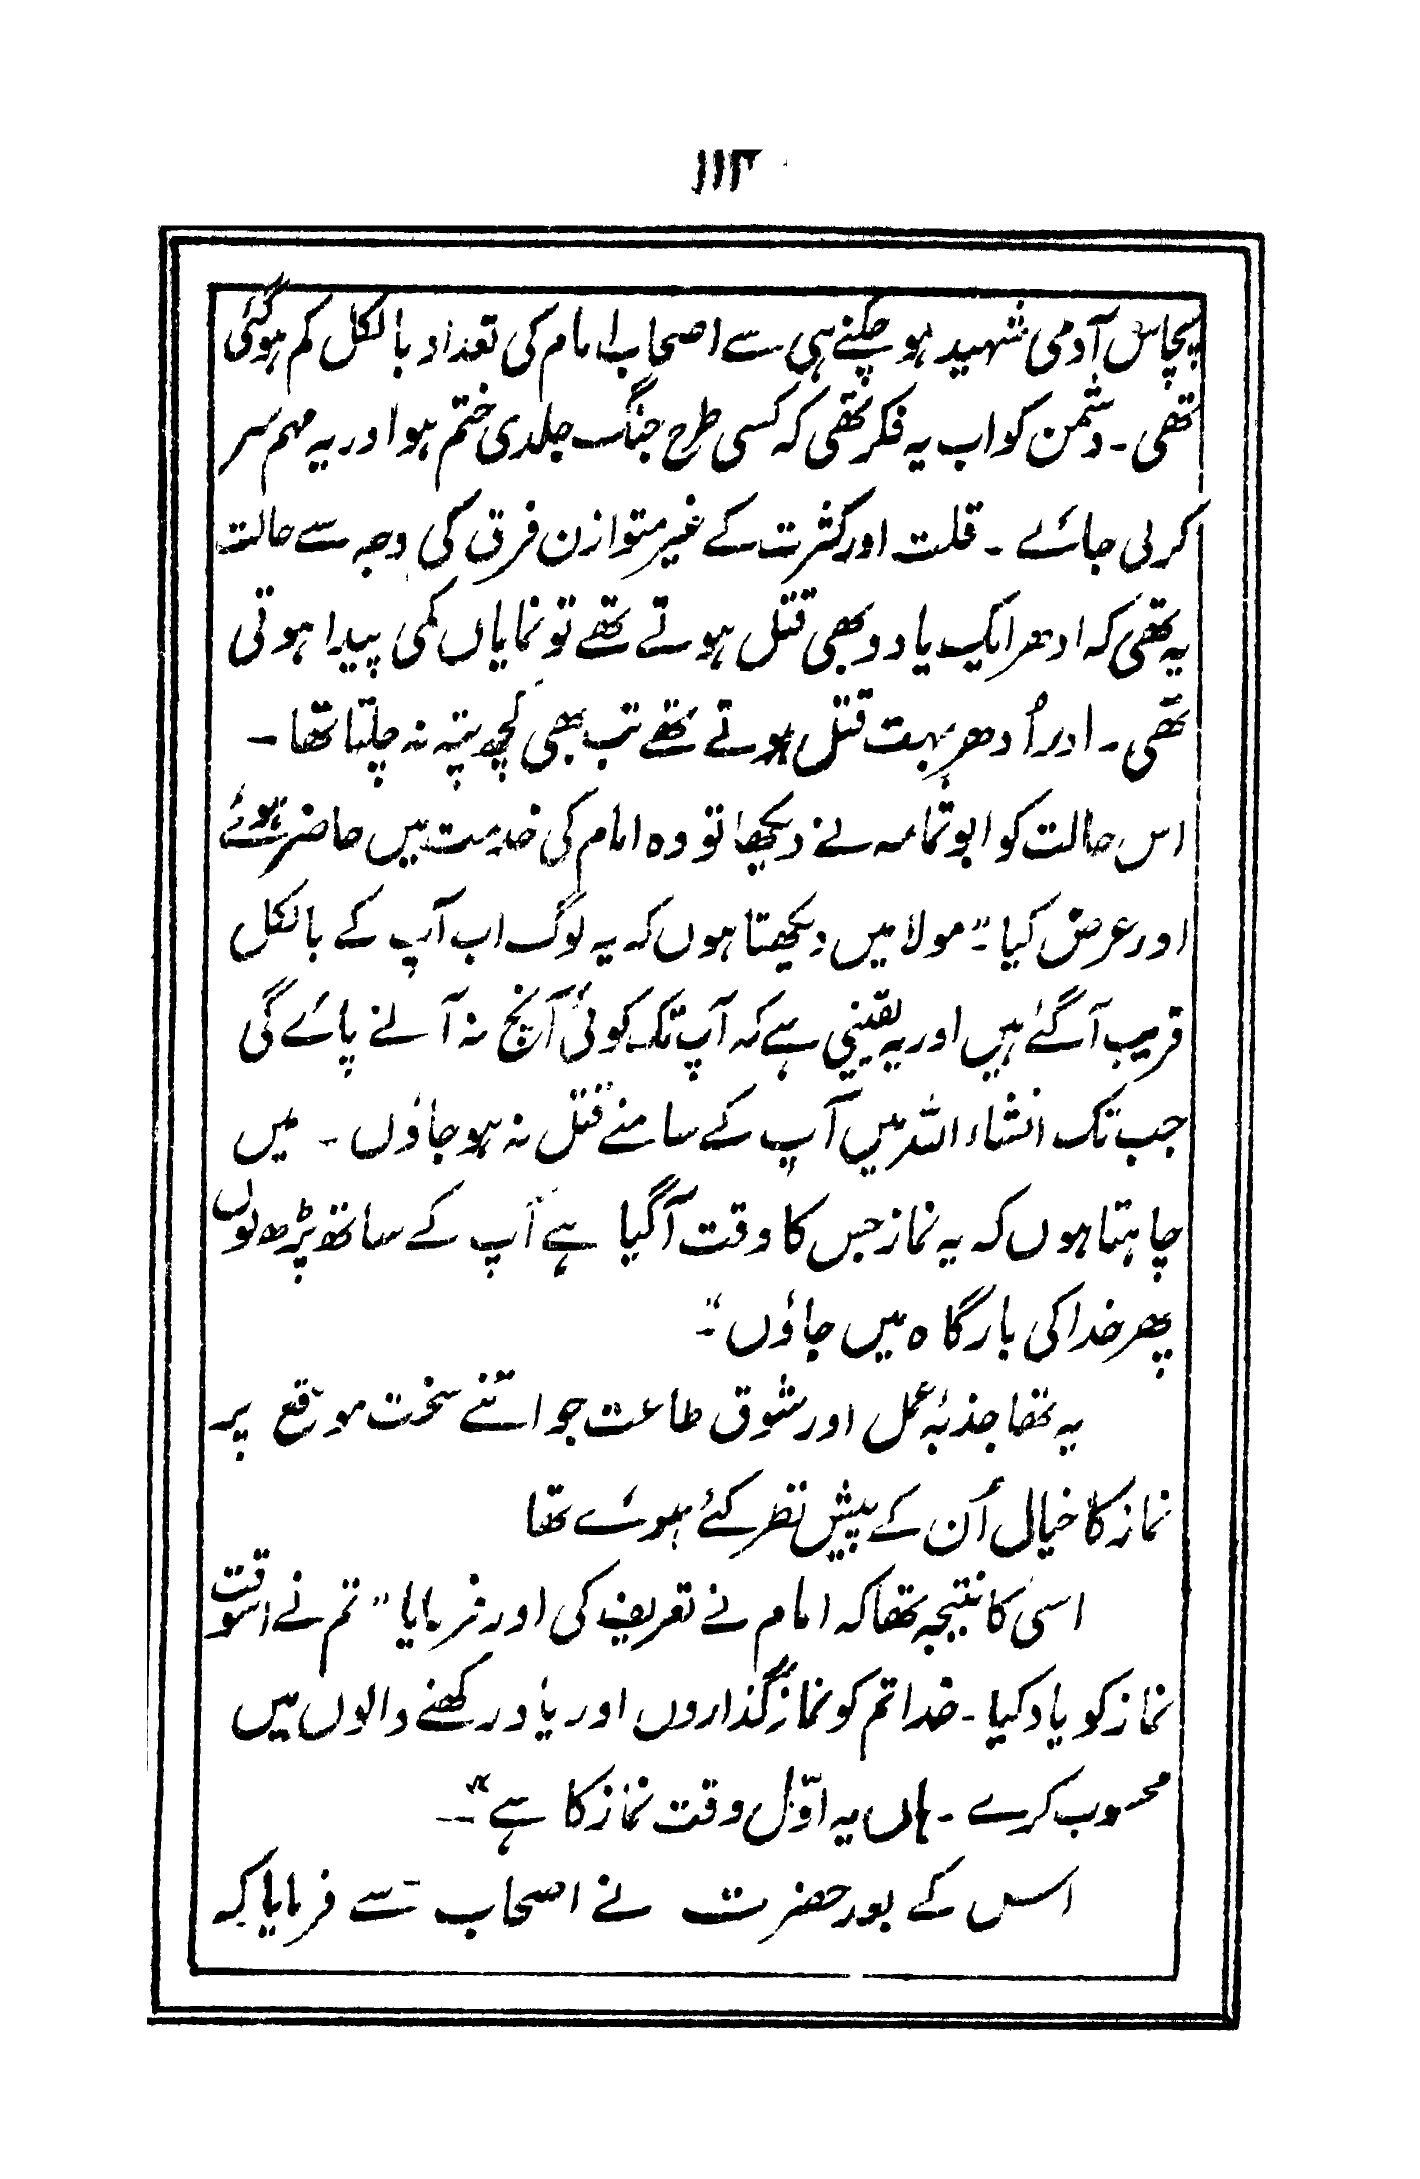 ۱۱۳
پچاس آدمی شہید ہو چکنے ہی سے اصحاب امام کی تعداد بالکل کم ہوگئی
تھی۔ دشمن کو اب یہ فکر تھی کہ کسی طرح جنگ جلدی ختم ہو اور یہ مہم سر
کرلی جائے ۔ قلت اور کثرت کے غیر متوازن فرق کی وجہ سے حالت
یہ تھی کہ ادھر ایک یا دو بھی قتل ہوتے تھے تو نمایاں کمی پیدا ہوتی
تھی۔ اور اُدھر بہت قتل ہوتے تھے تب بھی کچھ پتہ نہ چلتا تھا۔
اس حالت کو ابو ثمامہ نے دیکھا تو وہ امام کی خدمت میں حاضر ہوئے
اور عرض کیا۔"مولا میں دیکھتا ہوں کہ یہ لوگ اب آپ کے بالکل
قریب آگئے ہیں اور یہ یقینی ہے کہ آپ تک کوئی آنچ نہ آنے پائے گی
جب تک انشاء اللہ میں آپ کے سامنے قتل نہ ہو جاؤں ۔ میں
چاہتا ہوں کہ یہ نماز جس کا وقت آگیا ہے آپ کے ساتھ پڑھ لوں
پھر خدا کی بارگاہ میں جاؤں"۔
یہ تھا جذبۂ عمل اور شوق طاعت جو اتنے سخت موقع پر
نماز کا خیال اُن کے پیش نظر کئے ہوئے تھا
اسی کا نتیجہ تھا کہ امام نے تعریف کی اور فرمایا "تم نے اسوقت
نماز کو یاد کیا۔ خدا تم کو نماز گذاروں اور یاد رکھنے والوں میں
محسوب کرے ۔ ہاں یہ اوّل وقت نماز کا ہے"۔
اس کے بعد حضرت نے اصحاب سے فرمایا کہ